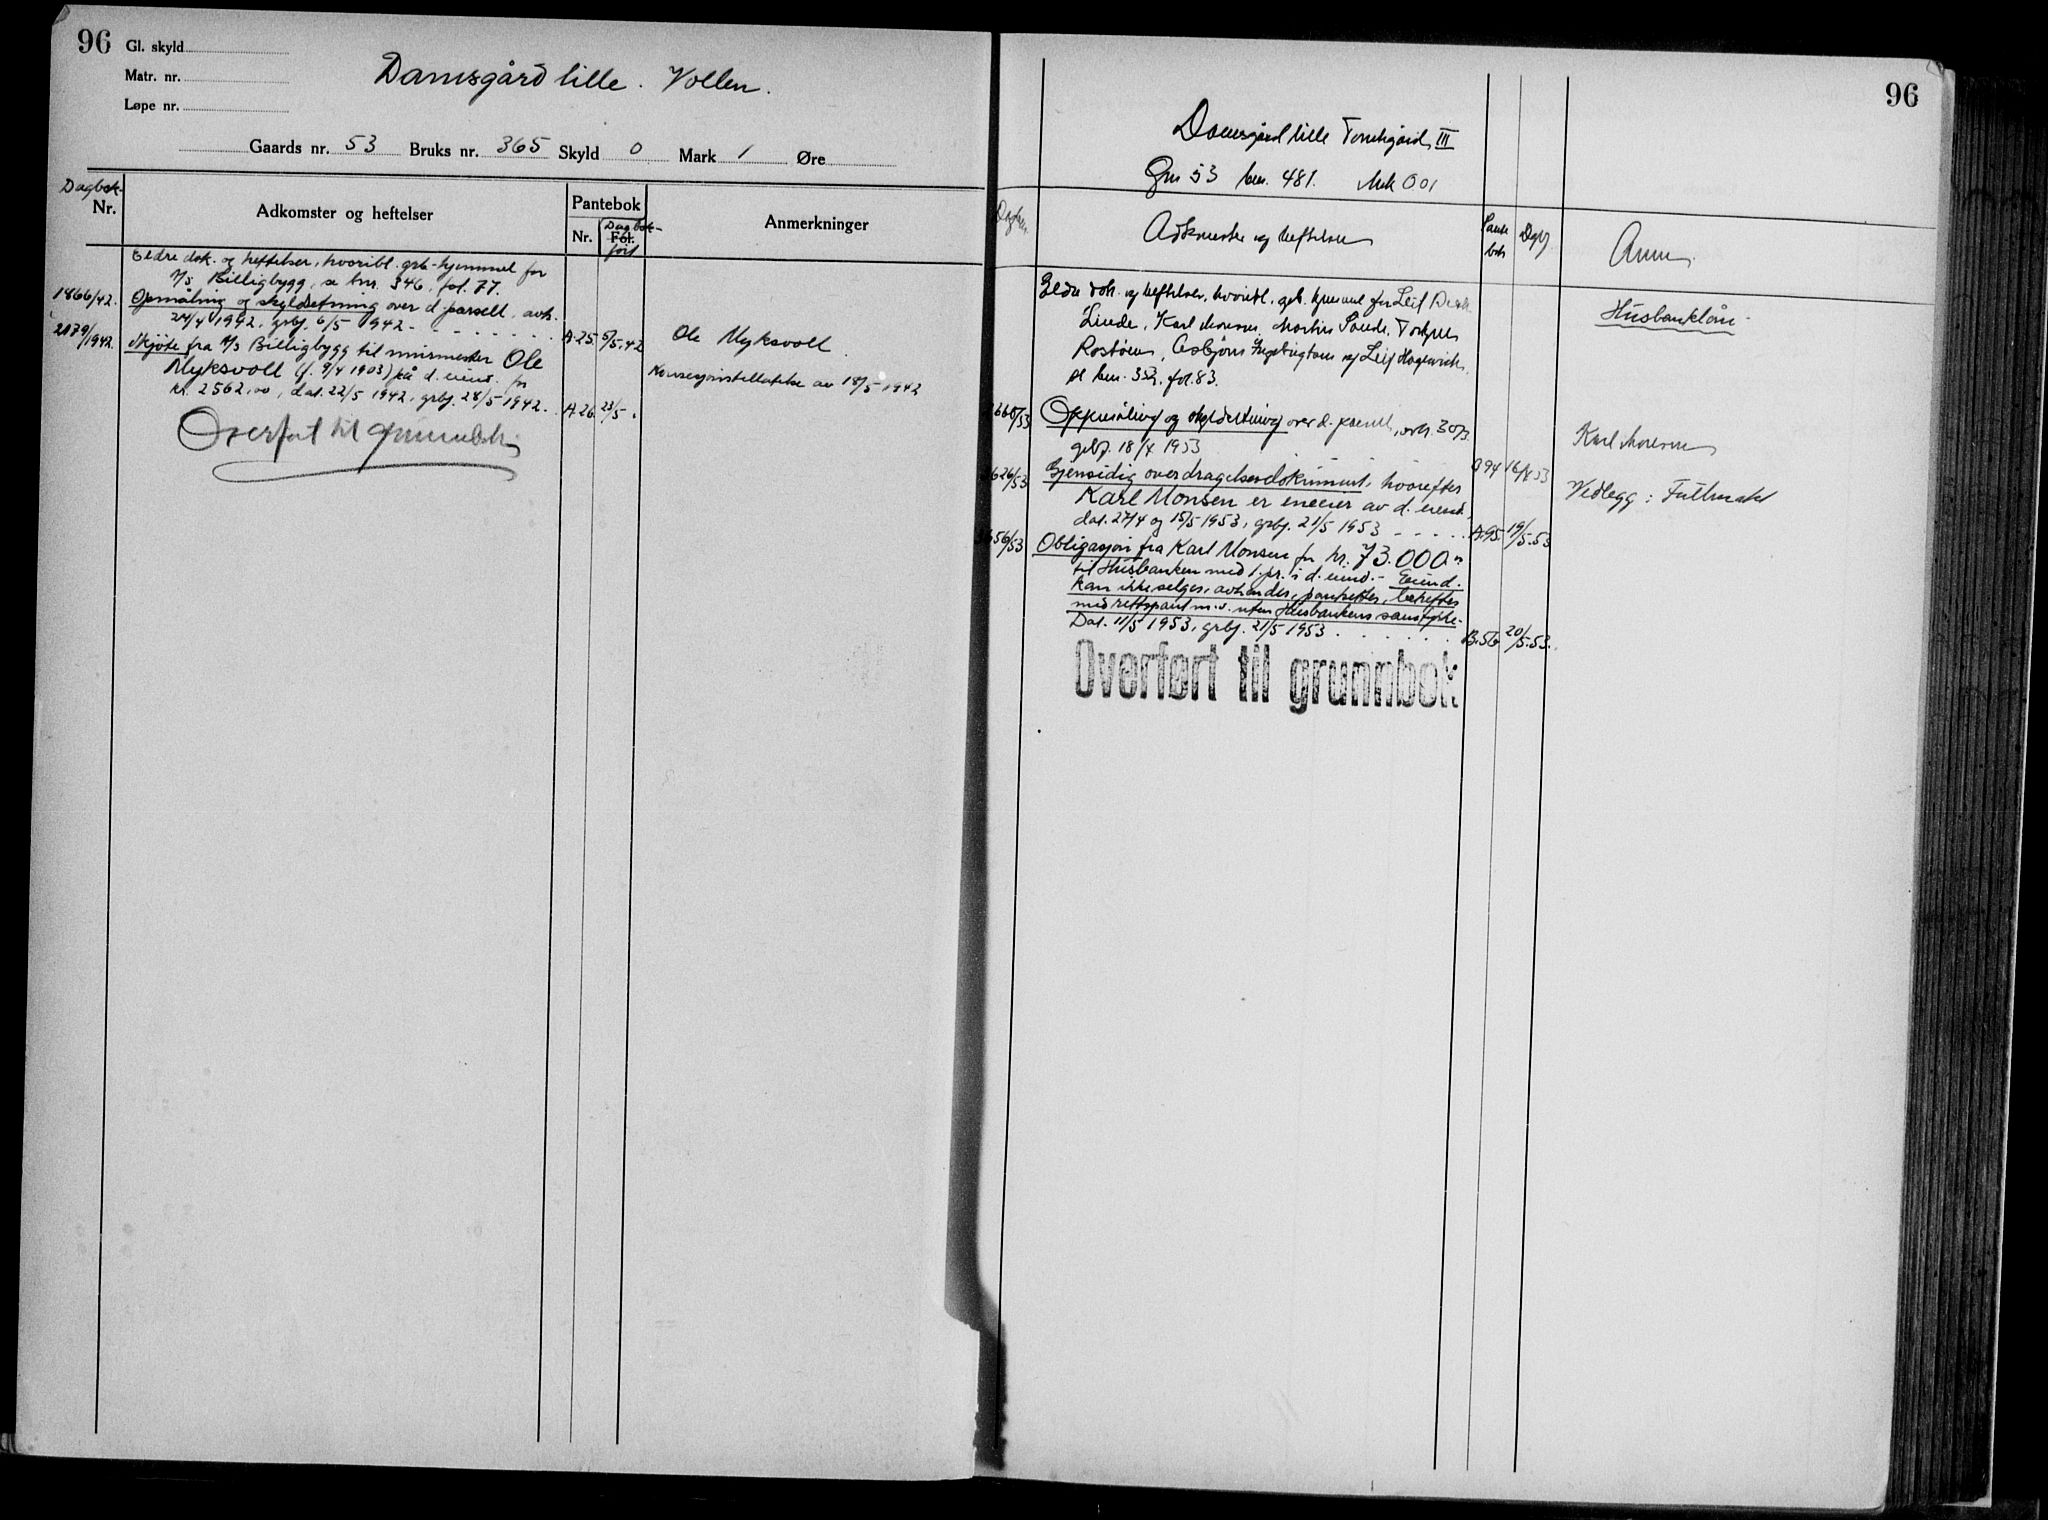 96
Gl. skyld
Matr. nr.
Løpe nr.
Damsgård lille. Vollen.
Gaards nr. 53 Bruks nr. 365 Skyld 0 Mark 1 Øre
Dagbok-
Nr.
Adkomster og heftelser
Pantebok
Nr.
Fol.
Dagbok-
ført
Anmerkninger
Eldre dok. og heftelser, hvoribl. grb-hjemmel for
A/s Billigbygg, se bnr. 346, fol. 77.
1866/42. Opmåling og skyldsetning over d. parsell, avh.
24/4 1942, grbf. 6/5 1942 - A-25. 5/5-42 Ole Myksvoll.
2079/1942. Skjøte fra A/s Billigbygg til murmester Ole
Myksvoll (f. 9/4 1903) på d. eiend. for Konsesjonstillatelse av 18/5 1942
kr. 2562,00, dat. 22/5 1942, grbf. 28/5 1942. A 26. 23/5.
Overført til grunnbok
96
Damsgård lille Tomtegård III
Gnr 53 bnr. 481. Mrk 001
Adkomster og heftelser
Pante
bok
Anm.
Eldre dok. og heftelser, hvoribl. grb. hjemmel for Leif
Linde, Karl Monsen, Martin Sande,
Asbjørn Ingebrigtsen og Leif
se bnr. 352, fol. 83.
Husbanklån
660/53 Oppmåling og skyldsetning over d. parsell, avh. 30/3.
grbf. 18/4 1953 A 94 16/4 53 Karl Monsen
626/53 Gjensidig overdragelsesdokument, hvorefter Vedlegg: Fullmakt
Karl Monsen er eneeier av d. eiend.
dat. 27/4 og 15/5 1953, grbf. 21/5 1953 A.95. 19/5.53
656/53 Obligasjon fra Karl Monsen for kr. 73.000
til Husbanken med 1. pr. i d. eiend. - Eiend.
kan ikke selges, avhendes, pantsettes, beheftes
med rettspant m.v. uten Husbankens samtykke.
Dat. 11/5 1953, grbf. 21/5 1953 B.56 20/5.53.
Overført til grunnbok